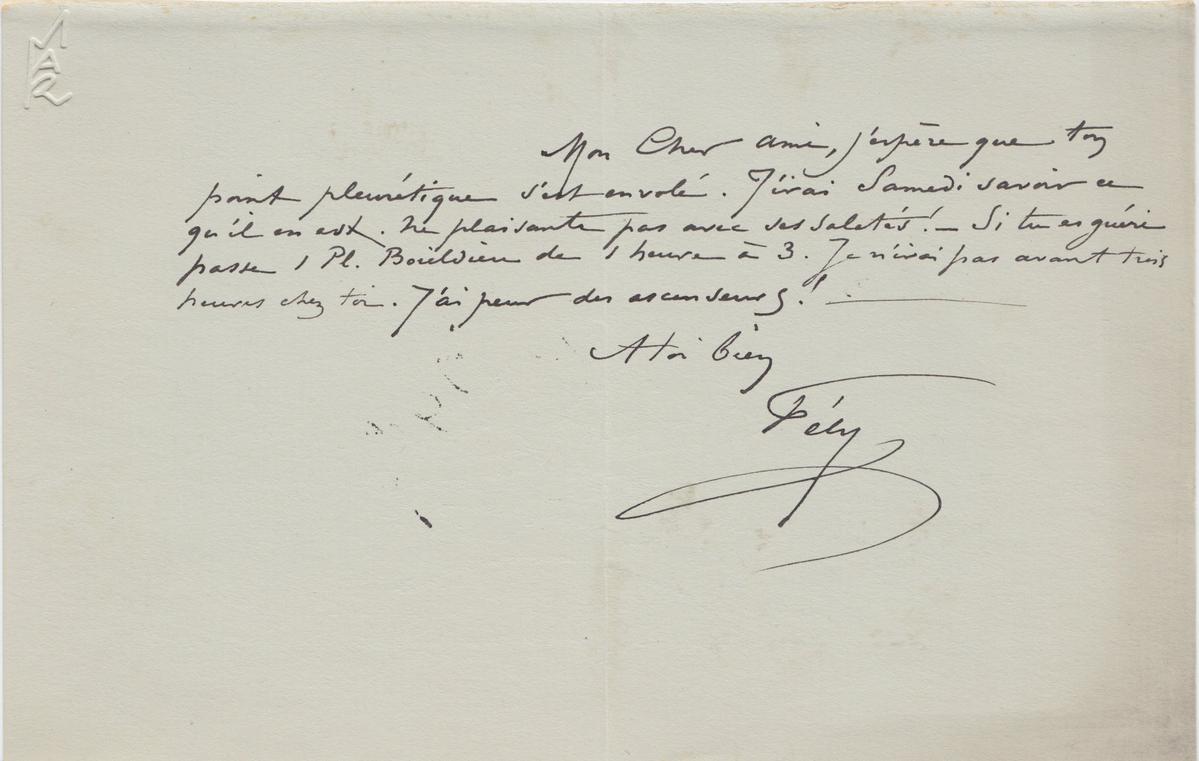 MAR
Mon Cher ami, j'espère que ton
point pleurétique s'est envolé. J'irai Samedi savoir ce
qu'il en est. Ne plaisante pas avec ses saletés! — Si tu es guéri
passe 1 Pl. Boïeldieu de 1 heure à 3. Je n'irai pas avant trois
heures chez toi. J'ai peur des ascenseurs!
A toi bien
Fély